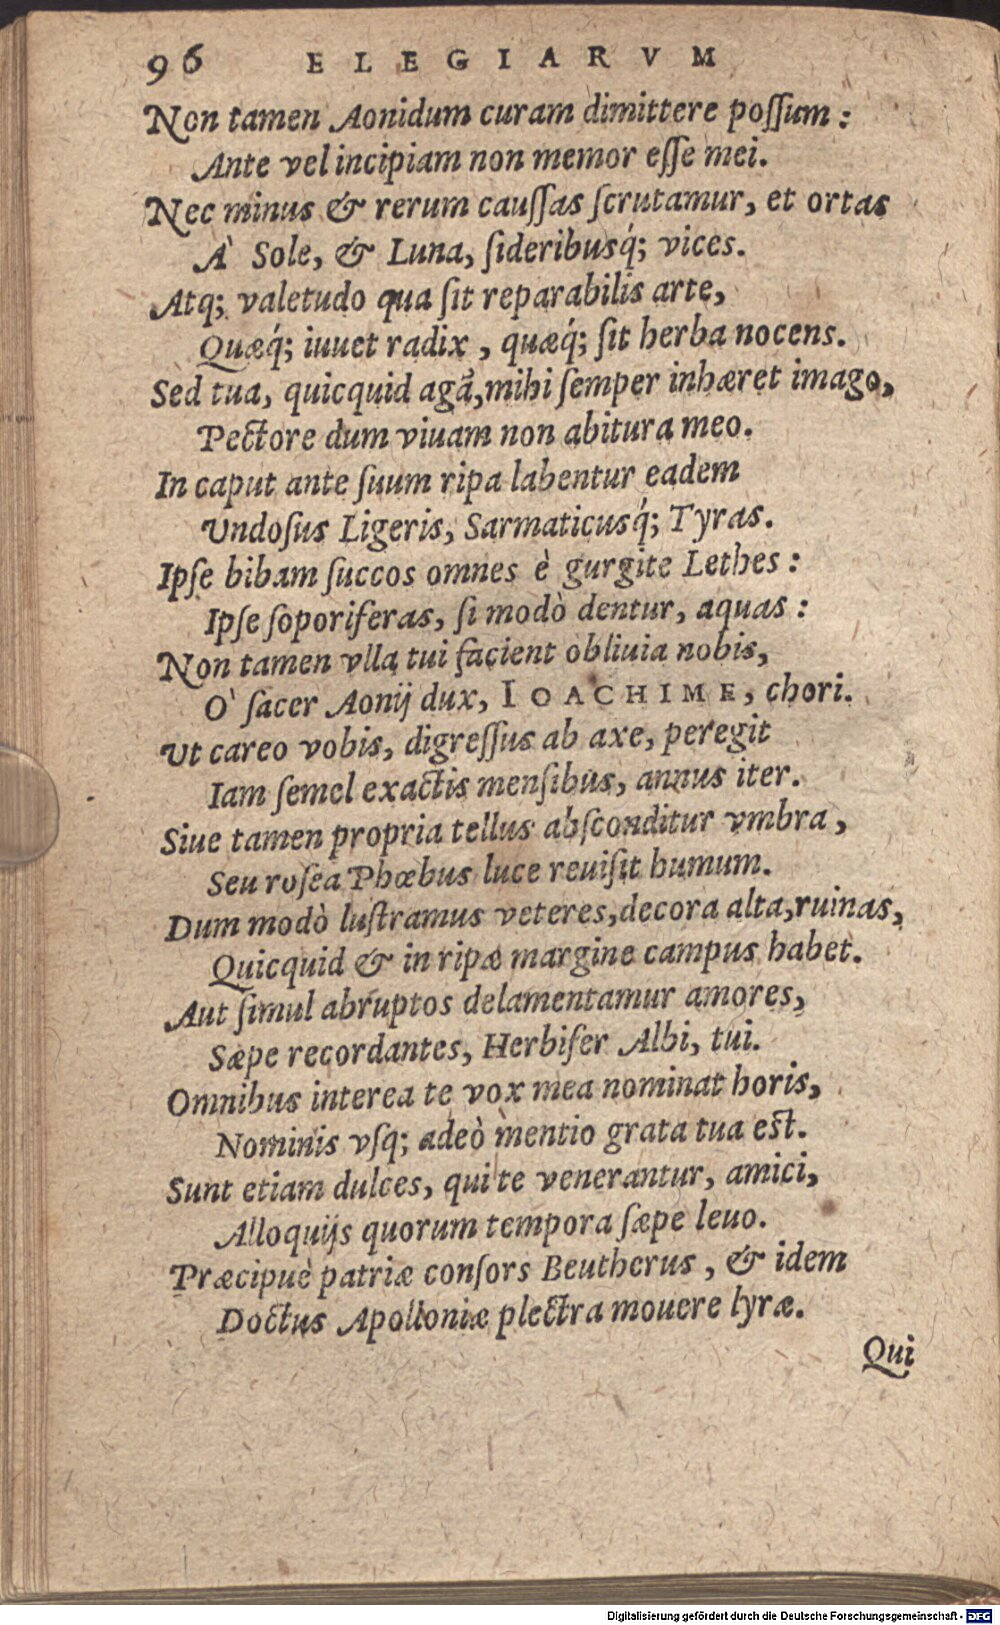 96 ELEGIARVM
Non tamen Aonidum curam dimittere poſſum:
Ante vel incipiam non memor eſſe mei.
Nec minus & rerum cauſſas ſcrutamur, et ortas
À Sole, & Luna, ſideribusq́; vices.
Atq; valetudo qua ſit reparabilis arte,
Quæq́; iuuet radix, quæq́; ſit herba nocens.
Sed tua, quicquid agã, mihi ſemper inhæret imago,
Pectore dum viuam non abitura meo.
In caput ante ſuum ripa labentur eadem
Vndoſus Ligeris, Sarmaticusq́; Tyras.
Ipſe bibam ſuccos omnes è gurgite Lethes:
Ipſe ſoporiferas, ſi modò dentur, aquas:
Non tamen vlla tui facient obliuia nobis,
Ò ſacer Aonij dux, IOACHIME, chori.
Vt careo vobis, digreſſus ab axe, peregit
Iam ſemel exactis menſibus, annus iter.
Siue tamen propria tellus abſconditur vmbra,
Seu roſea Phœbus luce reuiſit humum.
Dum modò luſtramus veteres, decora alta, ruinas,
Quicquid & in ripæ margine campus habet.
Aut ſimul abruptos delamentamur amores,
Sæpe recordantes, Herbifer Albi, tui.
Omnibus interea te vox mea nominat horis,
Nominis vſq; adeò mentio grata tua eſt.
Sunt etiam dulces, qui te venerantur, amici,
Alloquijs quorum tempora ſæpe leuo.
Præcipuè patriæ conſors Beutherus, & idem
Doctus Apolloniæ plectra mouere lyræ.
Qui
Digitalisierung gefördert durch die Deutsche Forschungsgemeinschaft - DFG